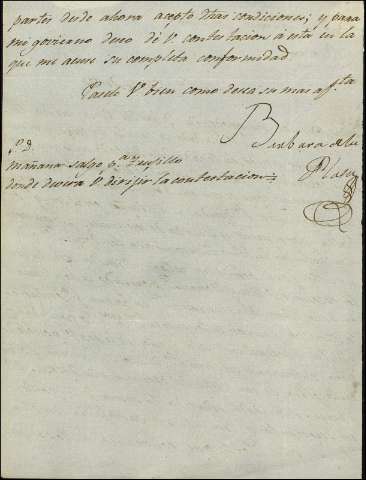 partes desde ahora acepto dhas condiciones; y para
mi govierno deseo dé V contestacion á esta en la
que me acuse su completa conformidad
Paselo V bien como desea su mas af.ta
Barbara de la
P.D.
Mañana salgo p.a Trujillo
donde devera V. dirijir la contestacion